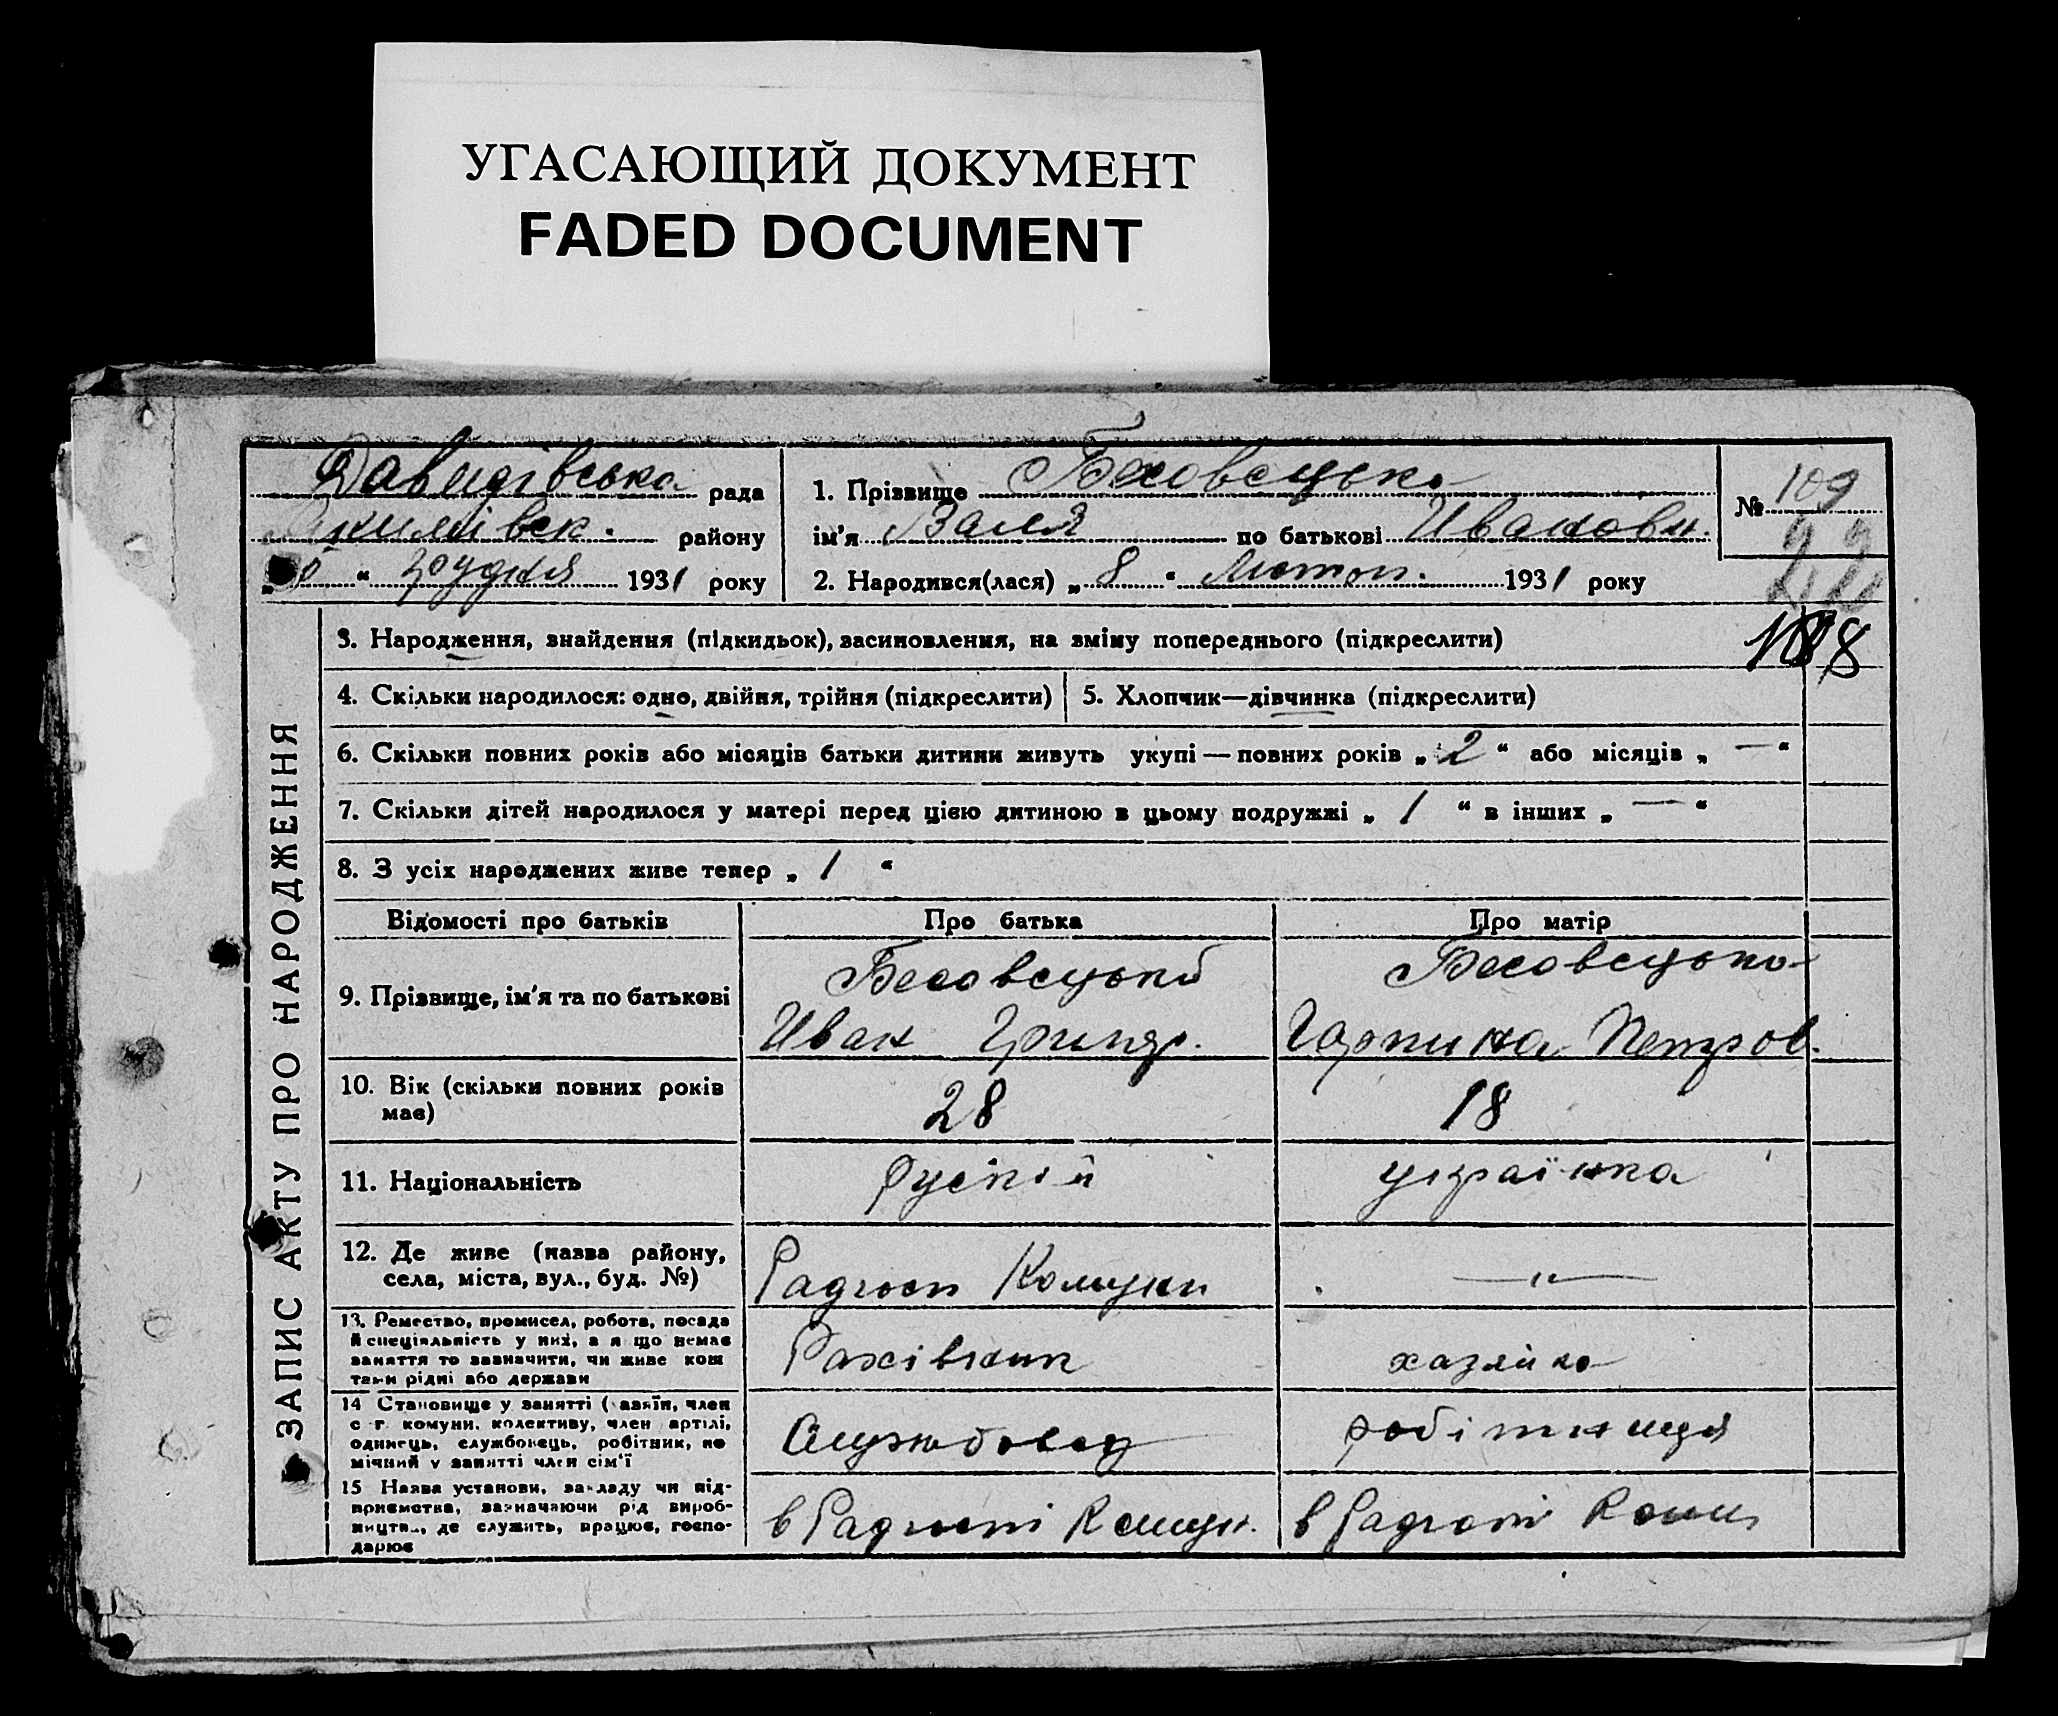 УГАСАЮЩИЙ ДОКУМЕНТ
FADED DOCUMENT
Давидівська рада
Якимівськ. району
“ грудня 1931 року
1. Прізвище
ім'я Валя по батькові Ивановн.
2. Народився(лася) „ 8 “ Лютоп. 1931 року
№ 109
188
ЗАПИС АКТУ ПРО НАРОДЖЕННЯ
3. Народження, знайдення (підкидьок), засиновлення, на зміну попереднього (підкреслити)
4. Скільки народилося: одно, двійня, трійня (підкреслити)
5. Хлопчик—дівчинка (підкреслити)
6. Скільки повних років або місяців батьки дитини живуть укупі — повних років „ 2 “ або місяців „ — “
7. Скільки дітей народилося у матері перед цією дитиною в цьому подружжі „ 1 “ в інших „ — “
8. З усіх народжених живе тепер „ 1 “
Відомості про батьків
Про батька
Про матір
9. Прізвище, ім'я та по батькові
Иван Григор.
Гарпина Петров.
10. Вік (скільки повних років
має)
28
18
11. Національність
руский
українка
12. Де живе (назва району,
села, міста, вул., буд. №)
Радгосп Комуни
— " —
13. Ремество, промисел, робота, посада
й спеціяльність у них, а я що немає
заняття то зазначити, чи живе кош
тами рідні або держави
Рахівник
хазяйка
14 Становище у занятті (хазяїн, член
с.-г. комуни, колективу, член артілі,
одинець, службовець, робітник, по
мічний у занятті член сім'ї
Службовец
робітниця
15 Назва установи, закладу чи під-
приємства, зазначаючи рід вироб-
ництва, де служить, працює, госпо-
дарює
в Радгоспі Комун.
в Радгоспі Комун